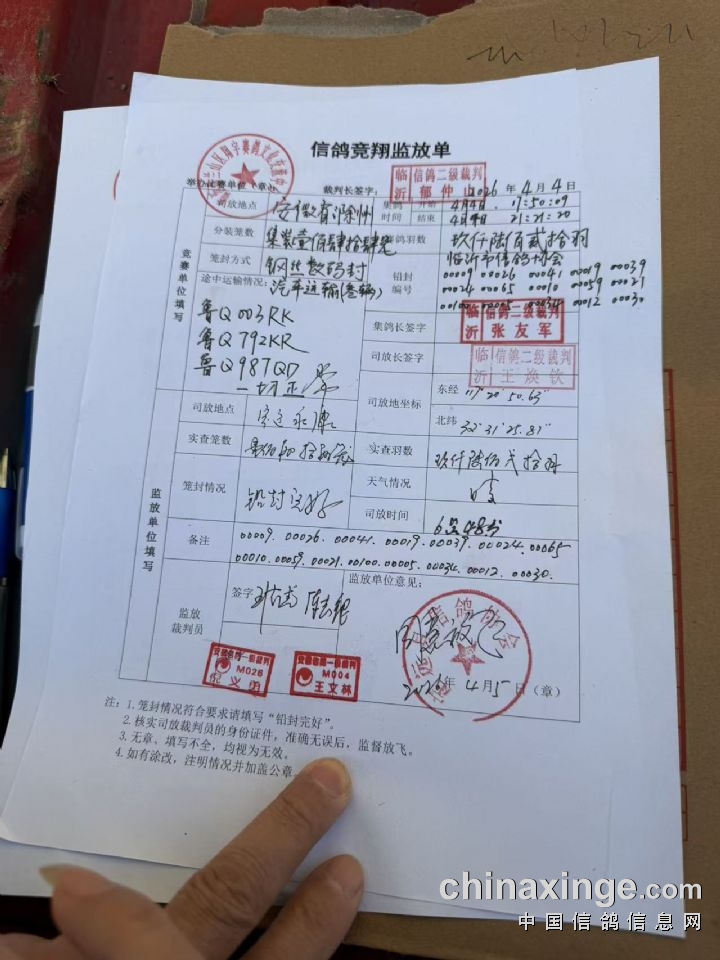 信鸽竞翔监放单
举办比赛单位（章）： 裁判长签字： 2026 年 4 月 4 日
临沂 信鸽二级裁判 郁仲山
竞赛单位填写
司放地点 安徽省滁州 集鸽时间 开始 4月4日 17:50:09
结束 4月4日 21:21:20
分装笼数 集装壹佰肆拾肆笼 集鸽羽数 玖仟陆佰贰拾羽
笼封方式 钢丝数码封 铅封编号 临沂市信鸽协会
00009 00026 00041 00019 00039
途中运输情况: 汽车运输(叁辆) 00024 00065 00010 00059 00021
00100 00005 00034 00012 00030
鲁Q 003RK
鲁Q 792KR
鲁Q 987QD
一切正常
集鸽长签字 临沂 信鸽二级裁判 张友军
司放长签字 临沂 信鸽二级裁判 王焕钦
监放单位填写
司放地点 定远永康 司放地坐标 东经 117°20′50.63″
北纬 32°31′25.81″
实查笼数 实查羽数 玖仟陆佰贰拾羽
笼封情况 铅封完好 天气情况
司放时间
备注 00009. 00026. 00041. 00019. 00039. 00024. 00065
00010. 00059. 00021. 00100. 00005. 00034. 00012. 00030.
监放裁判员 签字 监放单位意见：
同意放飞
安徽信鸽一级裁判 M026
安徽信鸽一级裁判 M004 王文林
2026 年 4 月 5 日（章）
注：1.笼封情况符合要求请填写“铅封完好”。
2.核实司放裁判员的身份证件，准确无误后，监督放飞。
3.无章、填写不全，均视为无效。
4.如有涂改，注明情况并加盖公章
chinaxinge.com
中国信鸽信息网